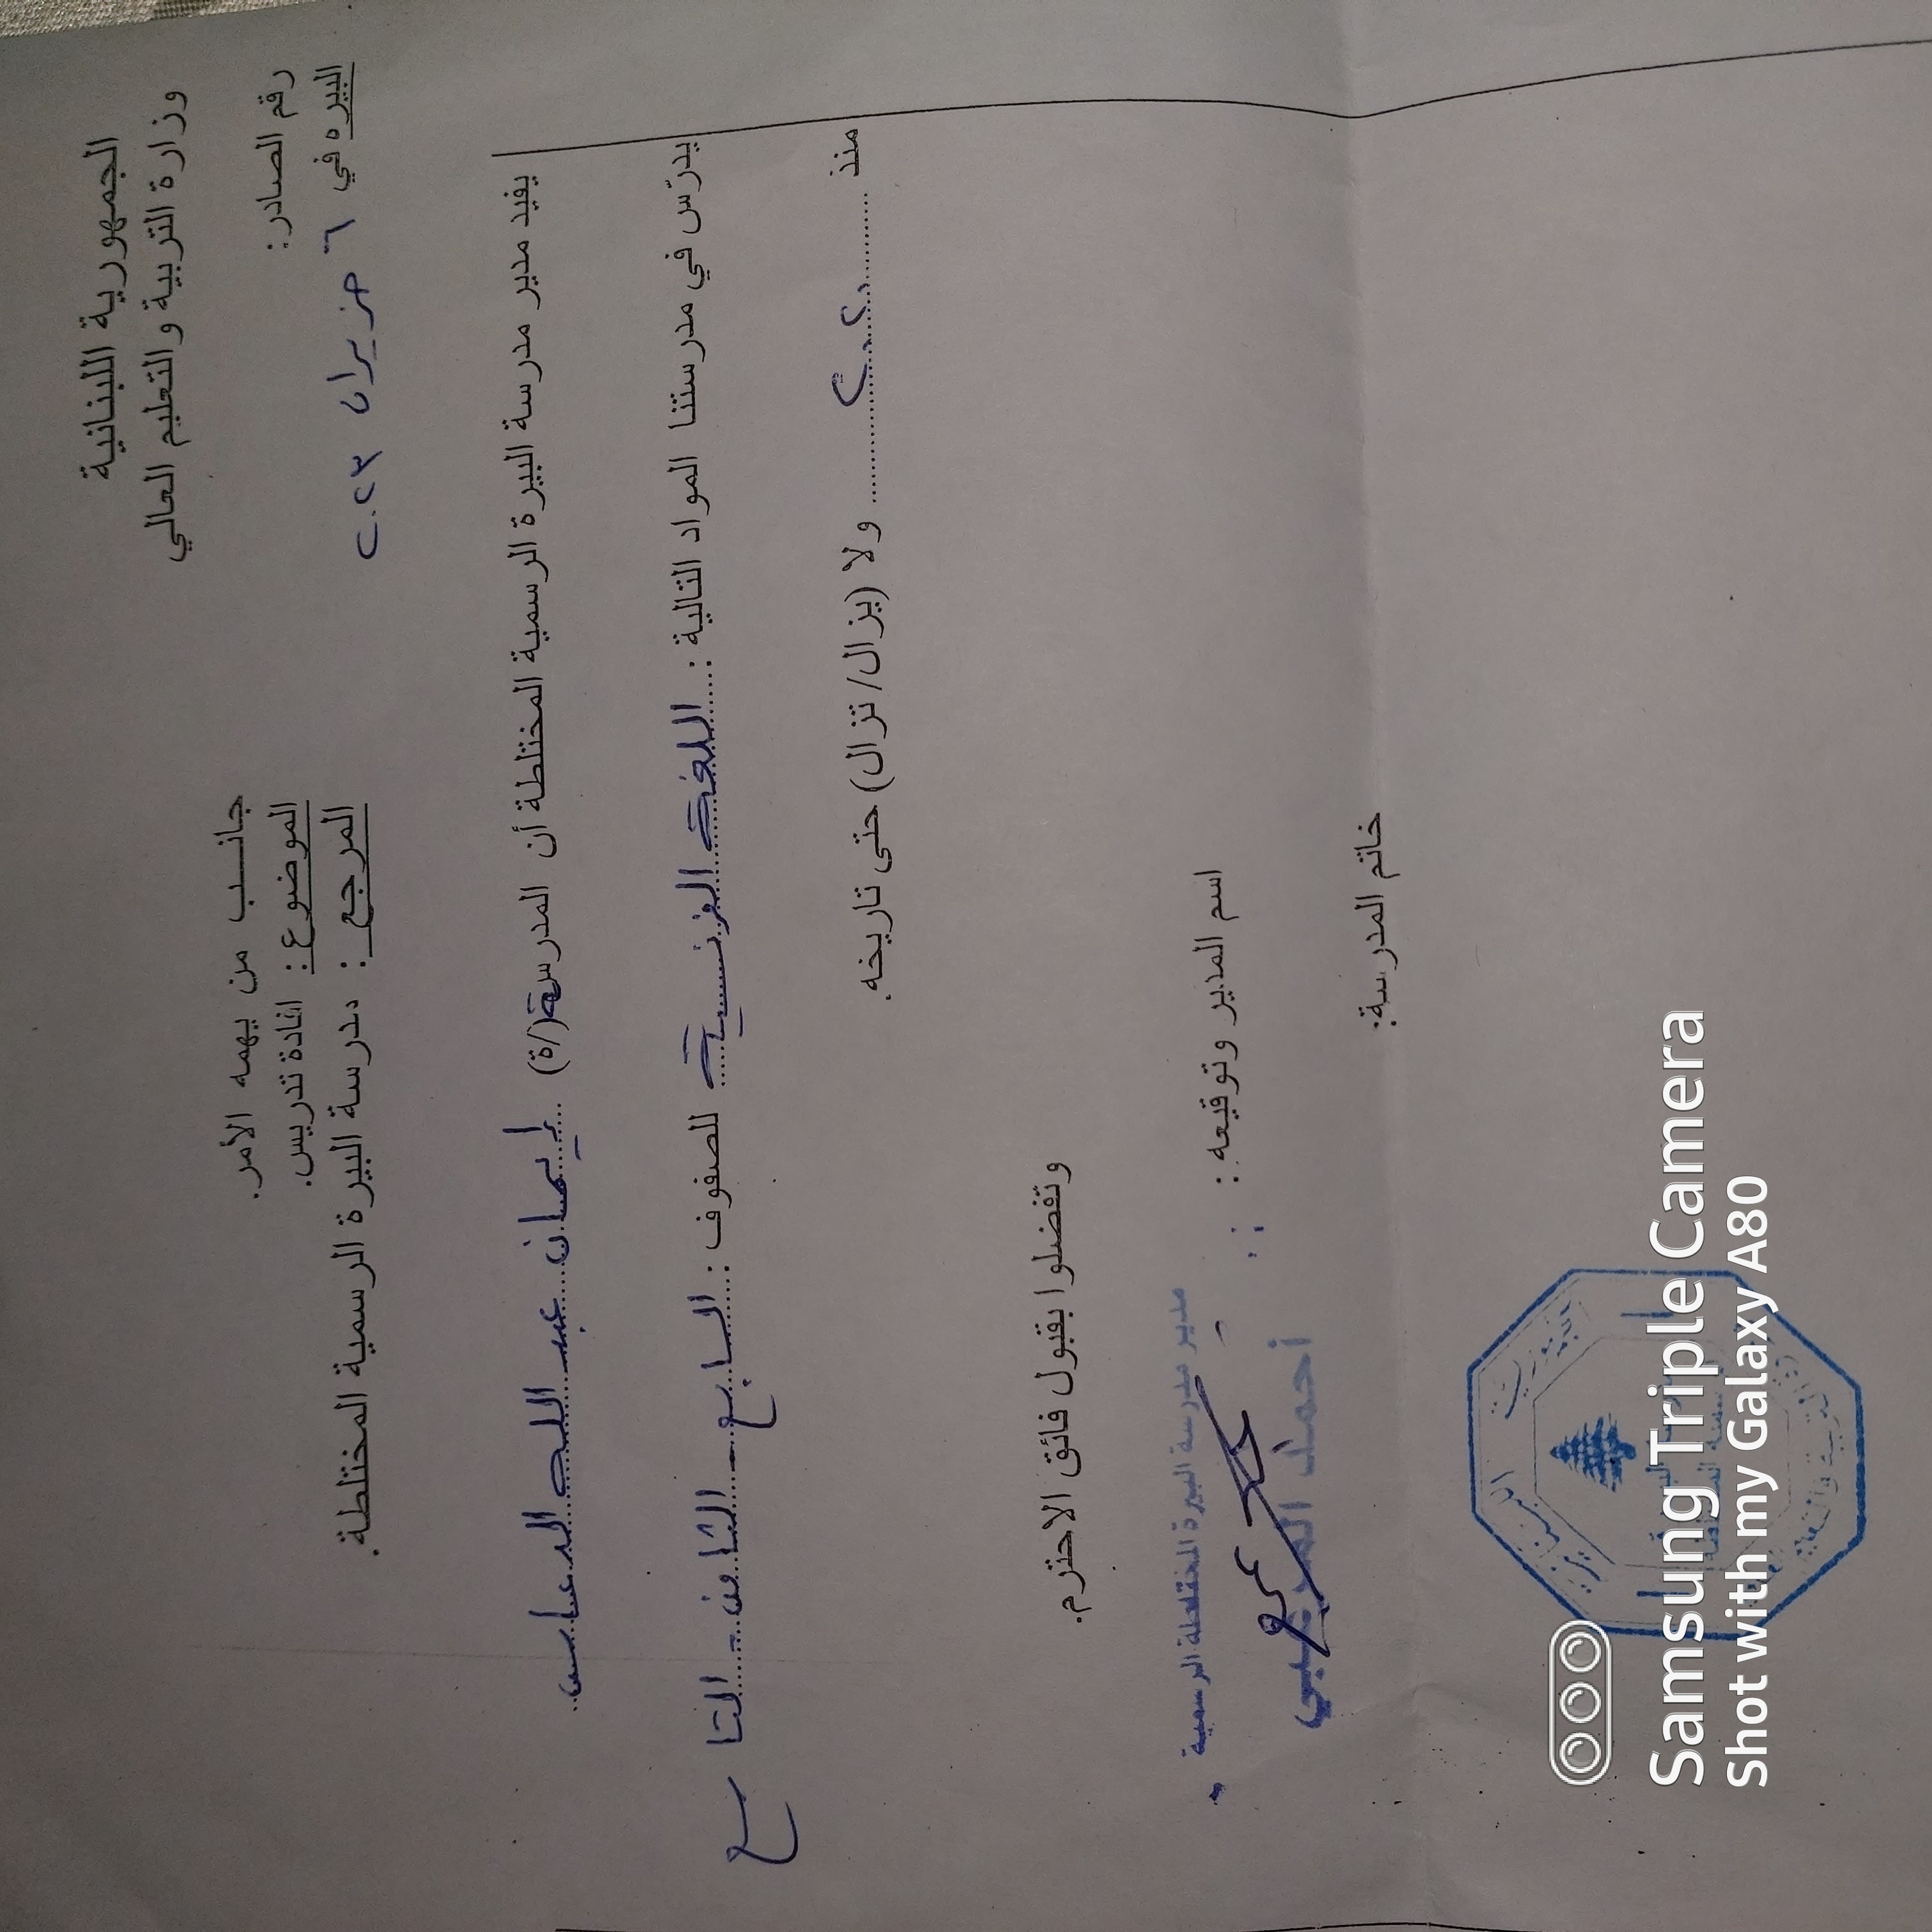 الجمهورية اللبنانية
وزارة التربية والتعليم العالي
رقم الصادر:
البيره في ٦ حزيران ٢٠٢٣
جانب من يهمه الأمر.
الموضوع : افادة تدريس.
المرجع : مدرسة البيرة الرسمية المختلطة.
يفيد مدير مدرسة البيرة الرسمية المختلطة أن المدرسة(/ة) إيمان عبد الله الدعاس
يدرّس في مدرستنا المواد التالية : اللغة الفرنسية للصفوف : السابع - الثامن - التاسع
منذ ........ ولا (يزال/ تزال) حتى تاريخه.
وتفضلوا بقبول فائق الاحترم.
اسم المدير وتوقيعه :
مدير مدرسة البيرة المختلطة الرسمية
أحمد
خاتم المدرسة:
Samsung Triple Camera
Shot with my Galaxy A80